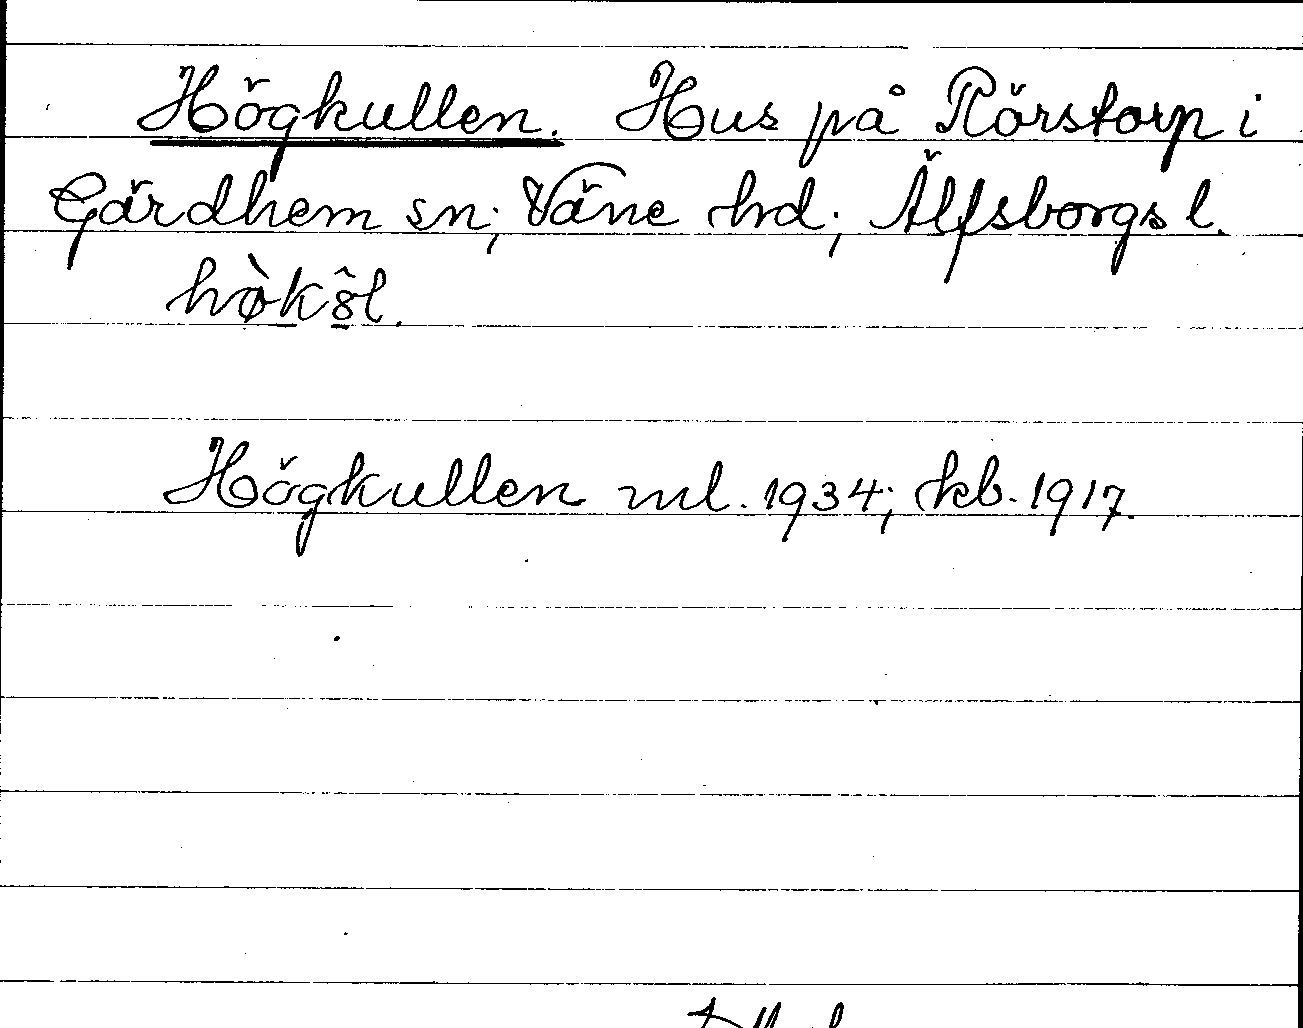 Högkullen. Hus på Rörstorp i
Gärdhem sn; Väne hd; Älfsborgs l.
Högkullen ml. 1934; kb. 1917.